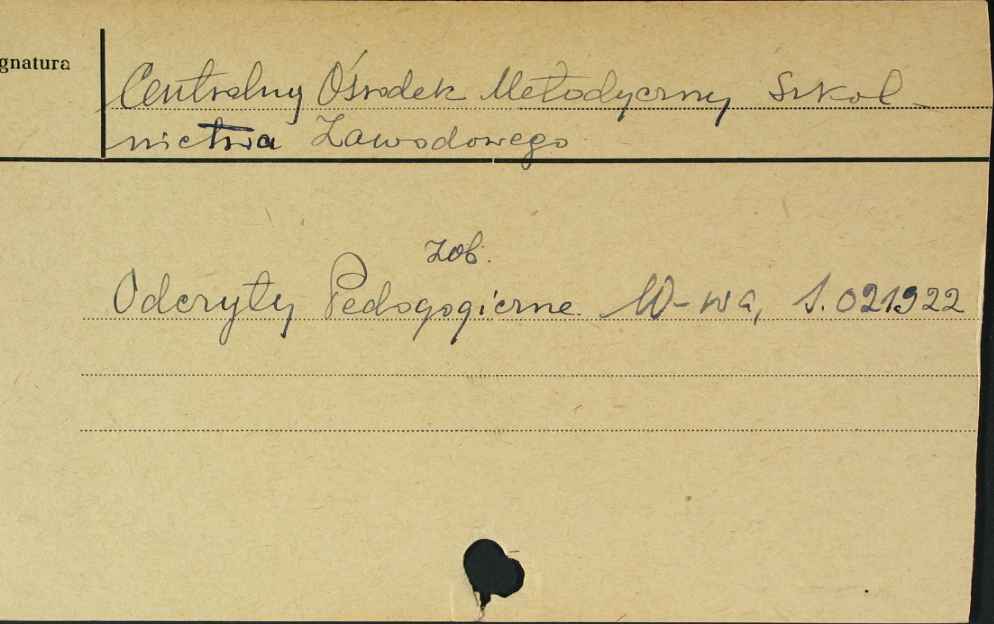 gnatura
Centralny Ośrodek Metodyczny Szkol-
nictwa Zawodowego
zob.
Odczyty Pedagogiczne. W-wa, S.021922